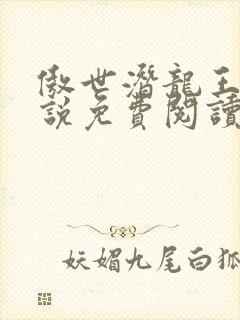 傲世潛龍王
說免費閱讀
妖媚九尾白狐